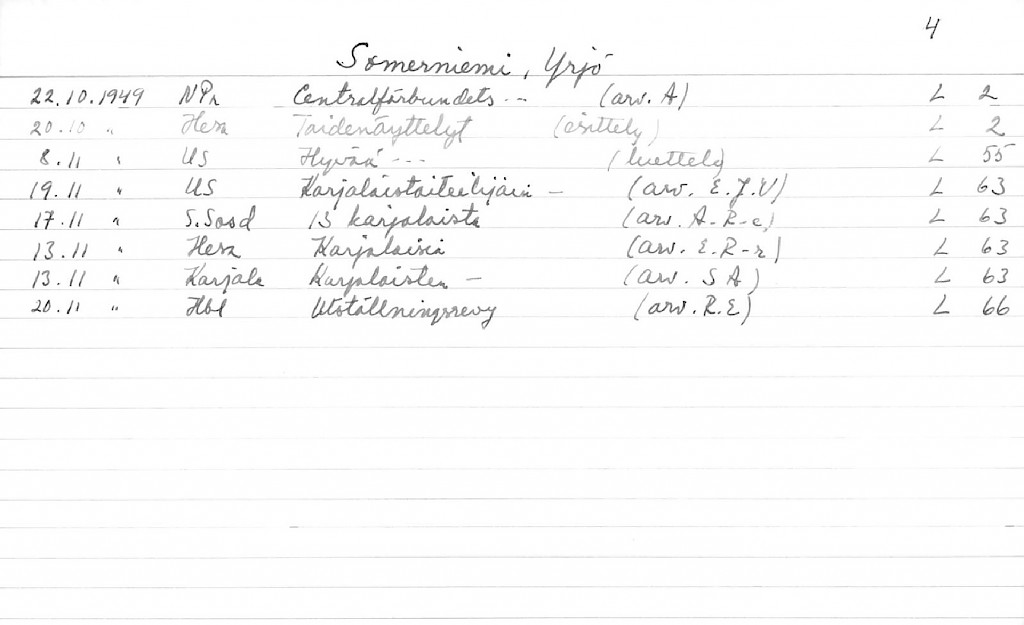 4
Somerniemi, Yrjö
22.10.1949 NPr Centralförbundets -- (arv. A) L 2
20.10 " Hesa Taidenäyttelyt (esittely) L 2
8.11 " US Hyvää --- (luettely) L 55
19.11 " US Karjalaistaiteilijain - (arv. E.J.V) L 63
17.11 " S.Sosd 13 karjalaista (arv. A-R-a) L 63
13.11 " Hesa Karjalaisia (arv. E.R-r) L 63
13.11 " Karjala Karjalaisten - (arv. S A) L 63
20.11 " Hbl Utställningsrevy (arv. R.E) L 66